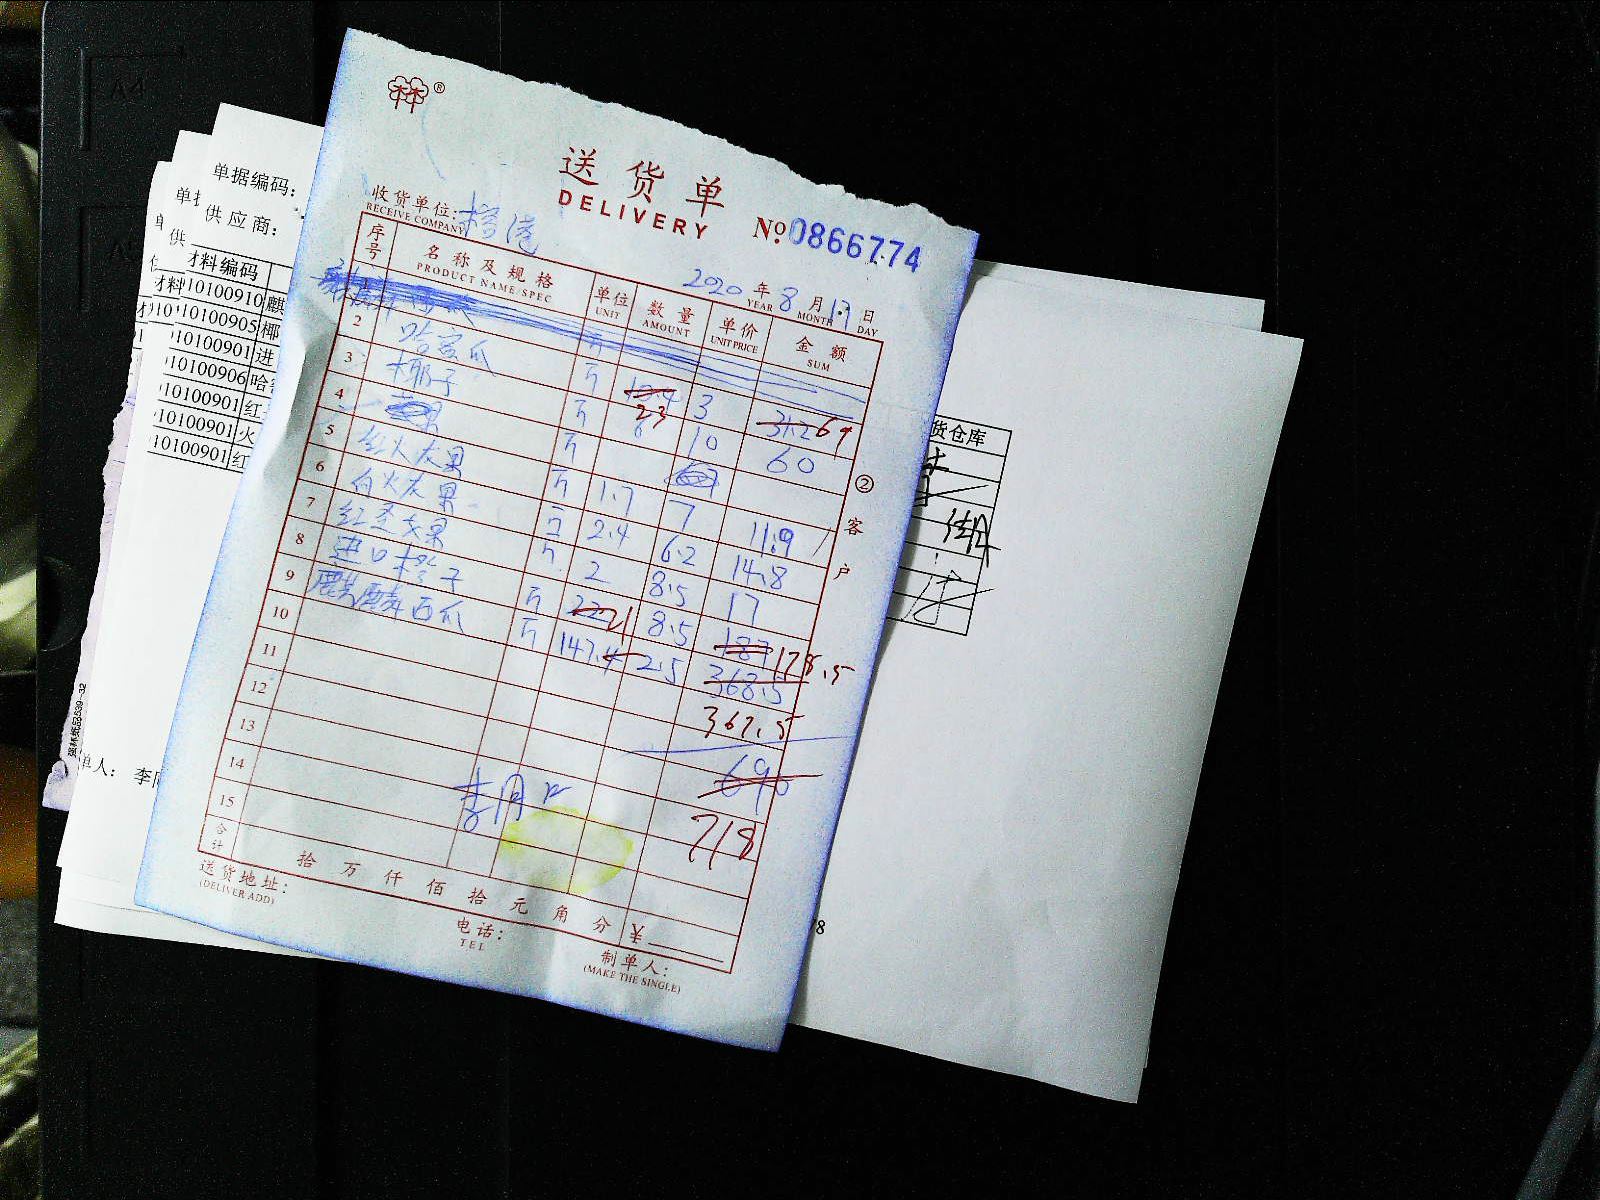 林®
送货单
DELIVERY
No 0866774
收货单位:
RECEIVE COMPANY
2020年8月17日
YEAR MONTH DAY
序号 名称及规格 单位 数量 单价 金额
PRODUCT NAME SPEC UNIT AMOUNT UNIT PRICE SUM
1
2 哈密瓜 斤 10.4 23 3 31.2 69
3 椰子 斤 6 10 60
4 斤
5 红火龙果 斤 1.7 7 11.9
6 白火龙果 斤 2.4 6.2 14.8
7 红圣女果 斤 2 8.5 17
8 进口橙子 斤 22 21 8.5 187 178.5
9 麒麟西瓜 斤 147.4 2.5 368.5
10 367.5
11
12 690
13 718
14
15
合计 拾万仟佰拾元角分 ¥
送货地址:
(DELIVER ADD)
电话:
TEL
制单人:
(MAKE THE SINGLE)
②客户
单据编码:
供应商:
材料编码
10100910 麒
10100905 椰
10100901 进
10100906 哈密
10100901 红
10100901 火
10100901 红
单人: 李
货仓库